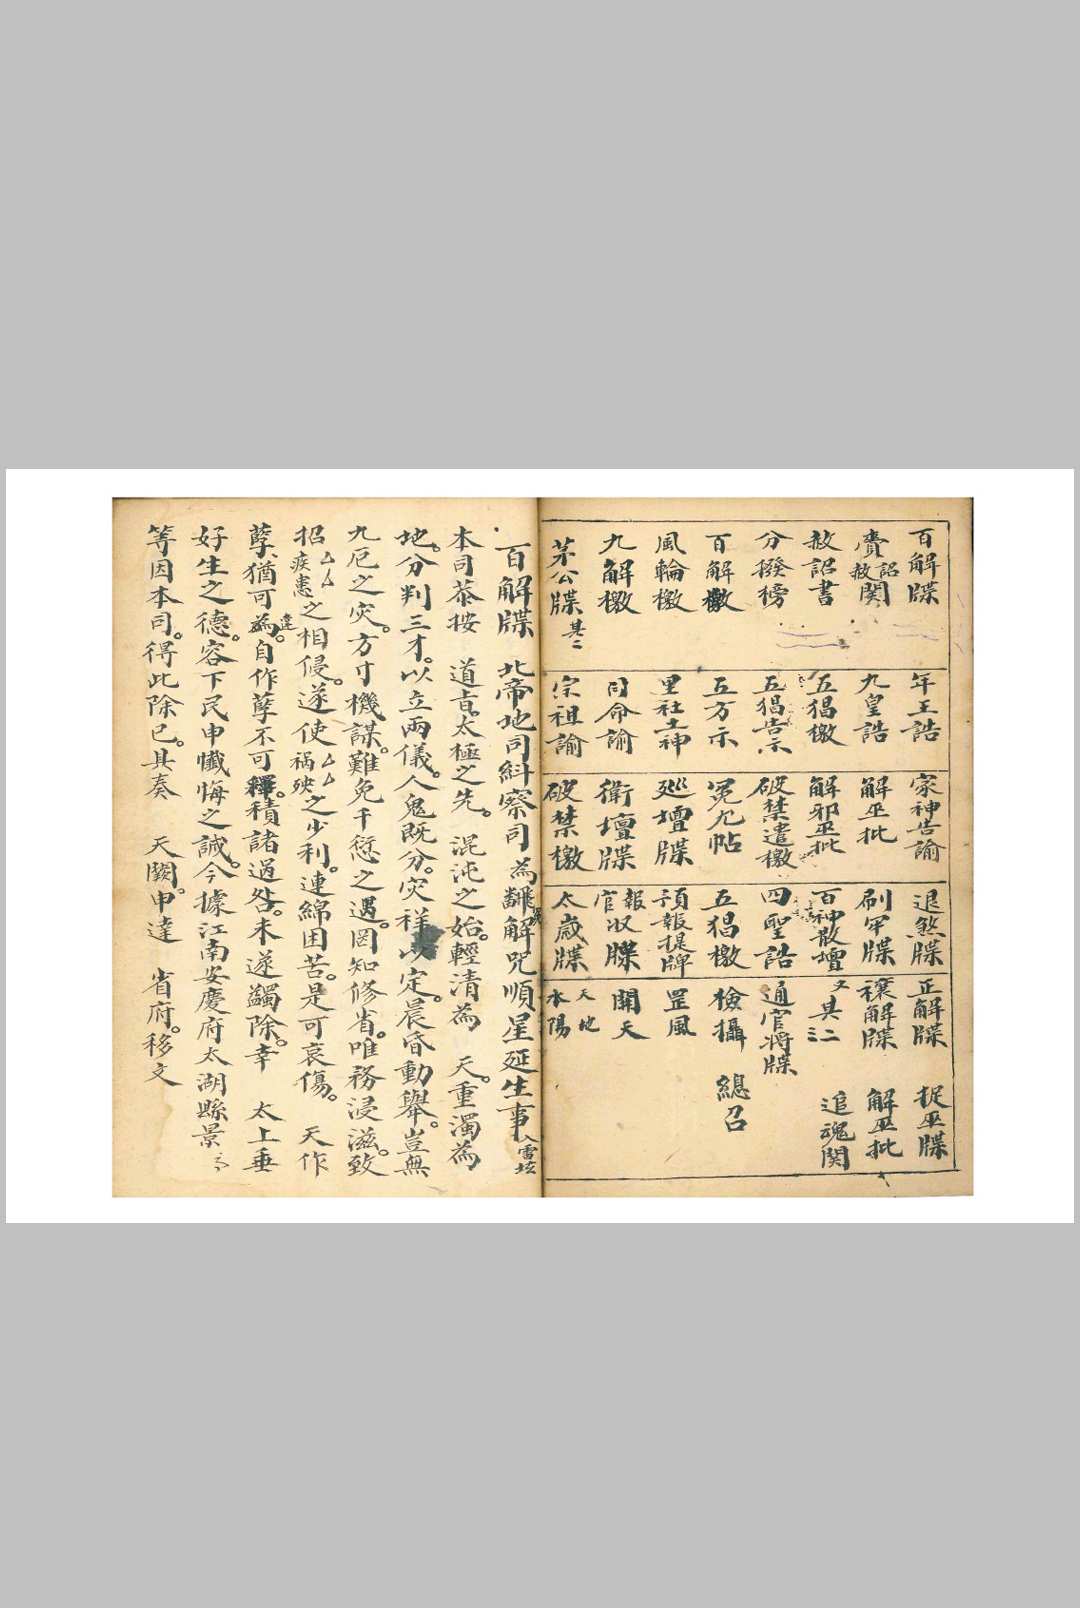 百解牒
賫詔赦関
赦詔書
分撥榜
百解檄
風輪檄
九解檄
茅公牒 其二
年王誥
九皇誥
五猖檄
五猖告示
五方示
里社土神
司命諭
宗祖諭
家神告諭
解巫批
解邪巫批
破禁遣檄
冤尤帖
巡壇牒
衛壇牒
破禁檄
退煞牒
刷罕牒
百神散壇
四聖誥
五猖檄
預報提牌
報収官牒
太歳牒
正解牒
禳解牒
又 具二三
通官将牒
檢攝
罡風
開天
天地水陽
捉巫牒
解巫批
追魂関
總召
百解牒 北帝地司糾察司 為翻解咒順星延生事 入雷坛
本司恭按 道旨。太極之先。混沌之始。輕清為 天。重濁為
地。分判三才。以立兩儀。人鬼既分。灾祥以定。晨昏動舉。豈無
九厄之灾。方寸機謀。難免千愆之遇。罔知修省。唯務浸滋。致
招厶厶疾患之相侵。遂使厶厶祸殃之少利。連綿困苦。是可哀傷。 天作
孽。猶可違。自作孽不可釋。積諸過咎。未遂蠲除。幸 太上垂
好生之德。容下民申懺悔之誠。今據江南安慶府太湖縣景
等因本司。得此除已。具奏 天闕。申達 省府。移文